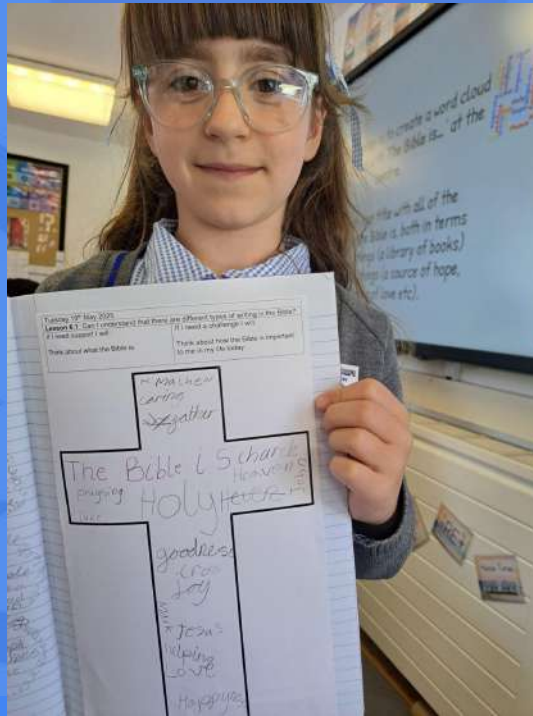 to create a word cloud
The Bible is...' at the
title with all of the
Bible is, both in terms
(a library of books)
(a source of hope,
love etc).
Tuesday 19th May 2025
Lesson 6.1: Can I understand that there are different types of writing in the Bible?
If I need support I will
If I need a challenge I will
Think about what the Bible is.
Think about how the Bible is important
to me in my life today
Mathew
caring
gather
The Bible is church
Heaven
praying
Holy
goodness
cros
Joy
Jesus
helping
Love
Happynes